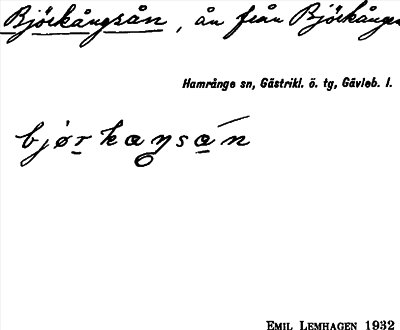 Björkångsån, ån från Björkången
Hamrånge sn, Gästrikl. ö. tg, Gävleb. l.
bjørkaŋsån
EMIL LEMHAGEN 1932